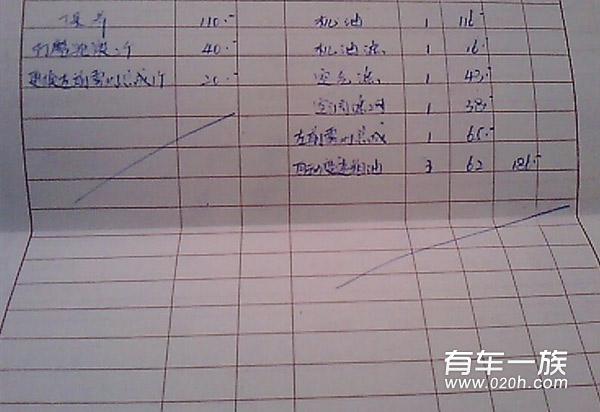 保养 110.- 机油 1 116.-
40.- 机油滤 1 16.-
更换左前雾灯总成1个 20.- 空气滤 1 43.-
空调滤网 1 38.-
左前雾灯总成 1 65.-
自动变速箱油 3 62 186.-
有车一族
www.020h.com